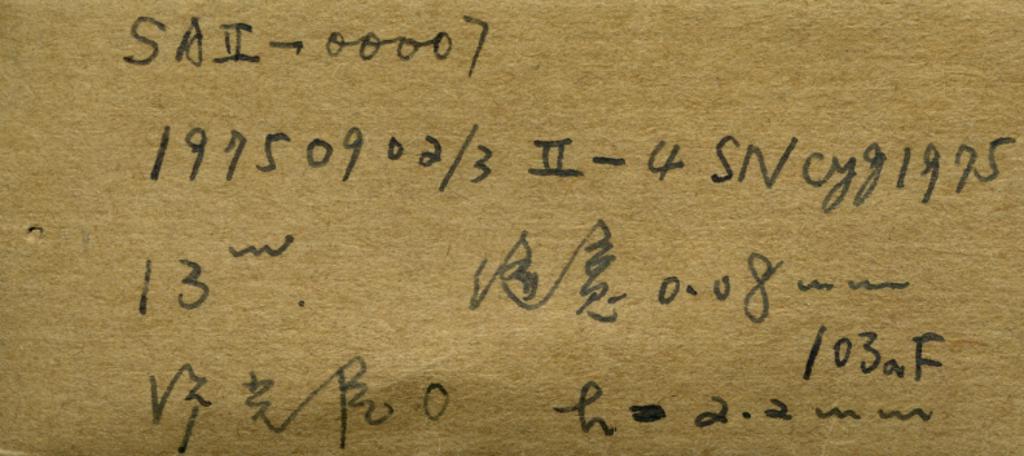 SAII-00007
19750902/3 II-4 SNcyg1975
13ᵐ. 缝宽 0.08mm
103aF
光 0 h=2.2mm